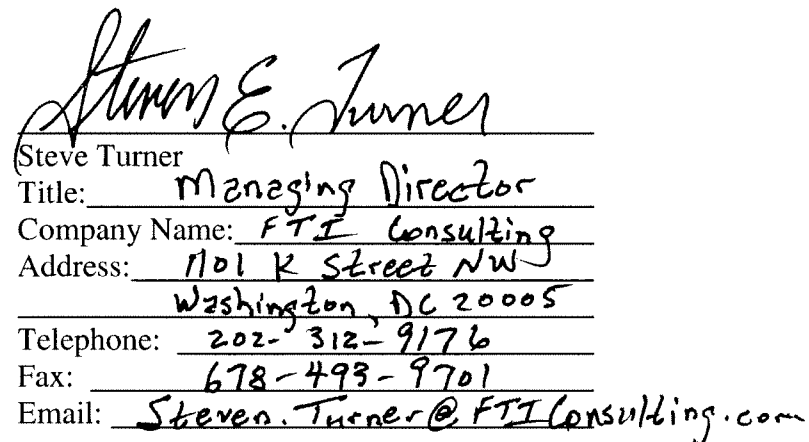 Steven E. Turner
Steve Turner
Title: Managing Director
Company Name: FTI Consulting
Address: 1101 K Street NW
Washington, DC 20005
Telephone: 202-312-9176
Fax: 678-493-9701
Email: Steven.Turner@FTIConsulting.com